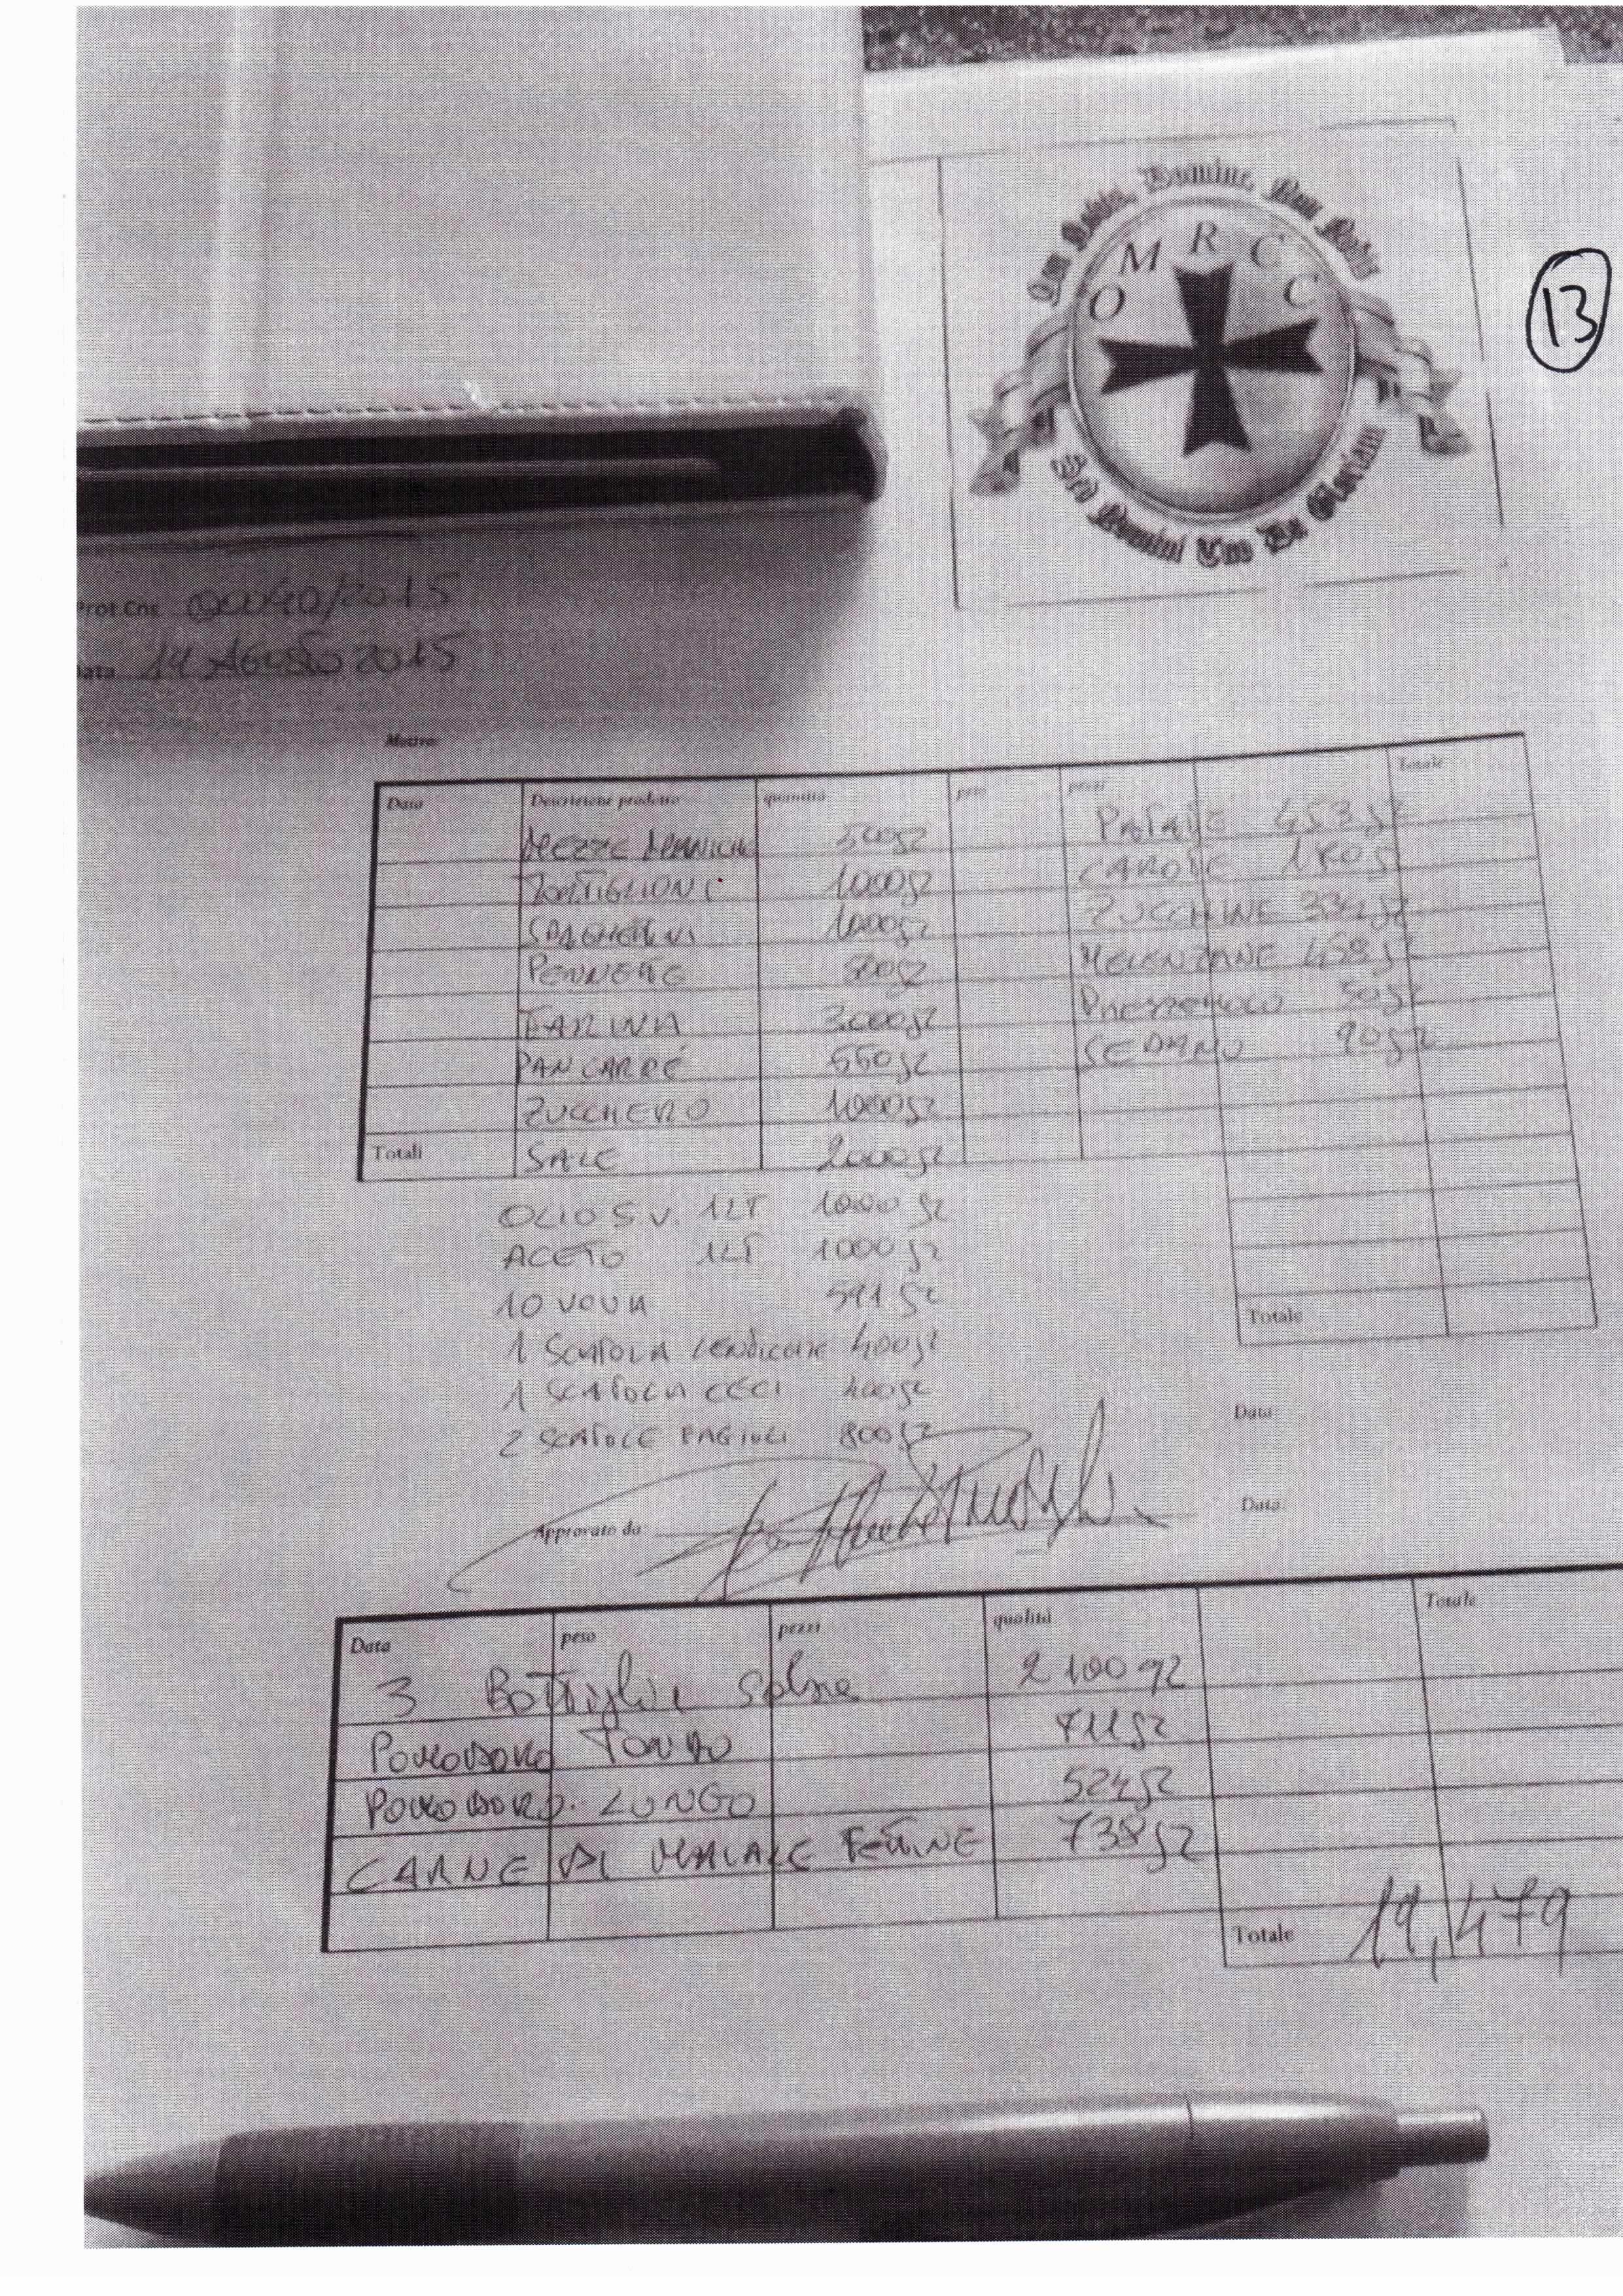 Non Nobis, Domine, Non Nobis
O M R C C
Sed Nomini Tuo Da Gloriam
13
Prot.Cns 00040/2015
Data 19 AGOSTO 2015
Motivo:
Data Descrizione prodotto quantità peso pezzi Totale
MEZZE MANICHE 500gr PATATE 453gr
TORTIGLIONI 1000gr CAROTE 180gr
SPAGHETTINI 1000gr ZUCCHINE 334gr
PENNETTE 500gr MELENZANE 458gr
FARINA 3000gr PREZZEMOLO 50gr
PAN CARRÉ 550gr SEDANO 90gr
ZUCCHERO 1000gr
Totali SALE 2000gr
OLIO S.V. 1LT 1000 gr
ACETO 1LT 1000 gr
10 UOVA 591 gr
1 SCATOLA LENTICCHIE 400gr
1 SCATOLA CECI 400gr
2 SCATOLE FAGIOLI 800gr
Totale
Data:
Approvato da:
Data:
Data peso pezzi qualità Totale
3 Bottiglie salsa 2100 gr
POMODORO TONDO 711gr
POMODORO LUNGO 524gr
CARNE DI MAIALE FETTINE 738gr
Totale 19,479